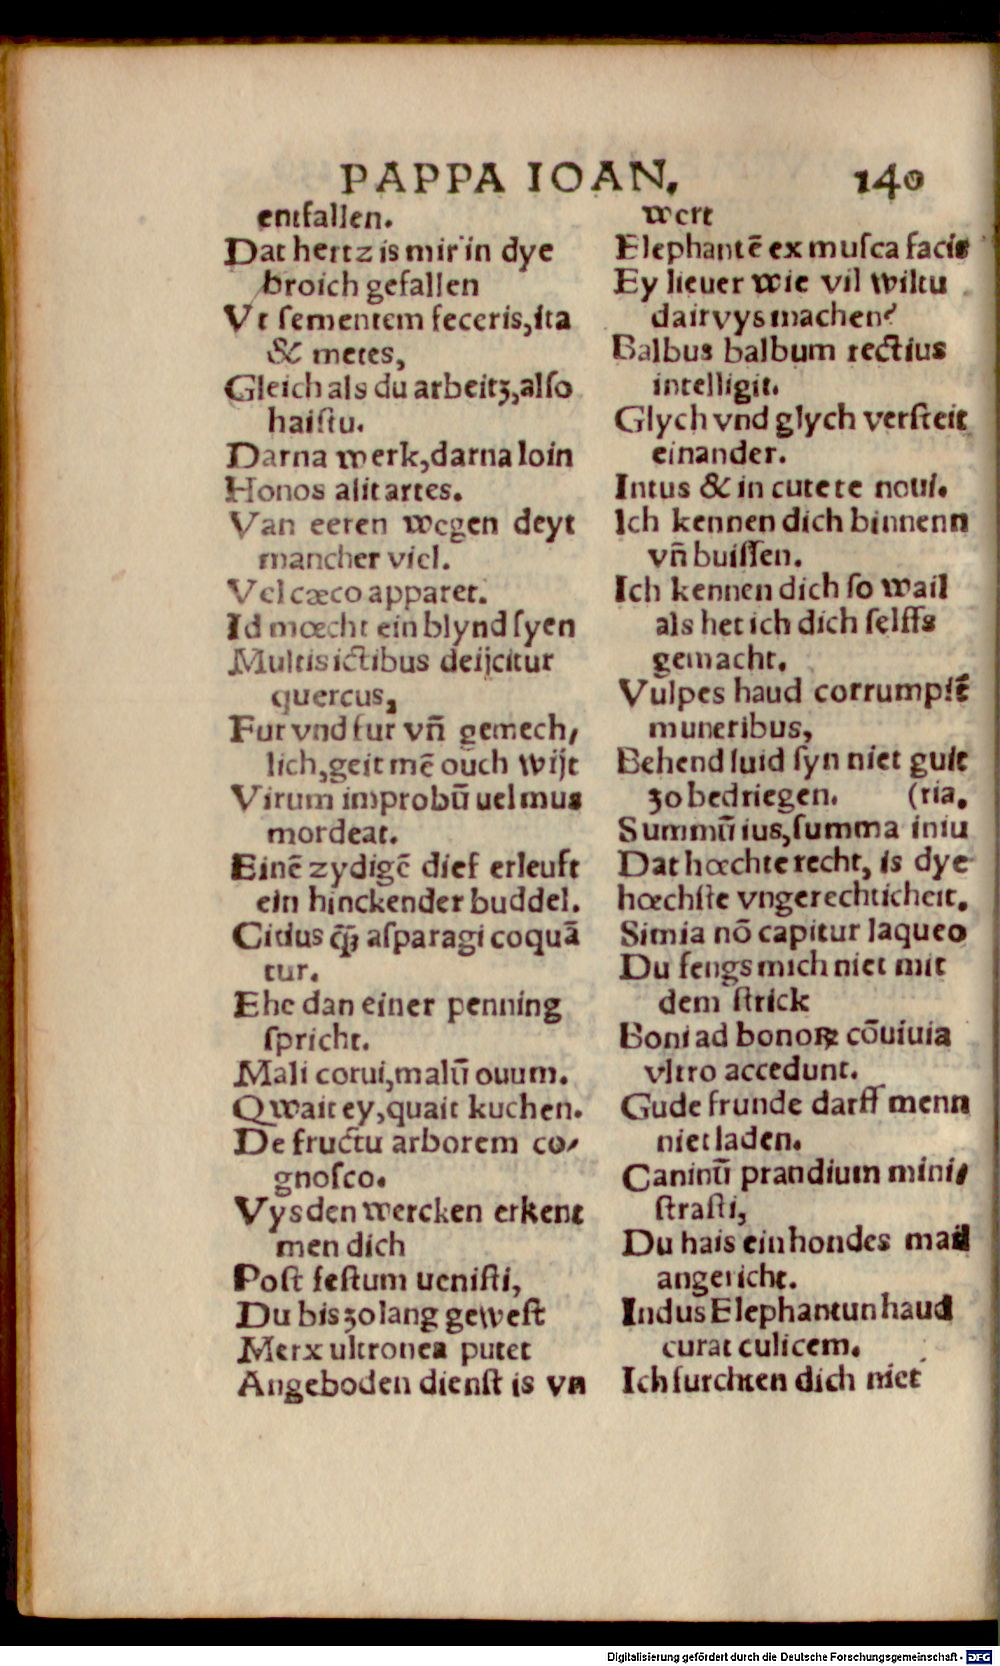 PAPPA IOAN. 140
entfallen.
Dat hertz is mir in dye
broich gefallen
Vt ſementem feceris, ita
& metes,
Gleich als du arbeitz, alſo
haiſtu.
Darna werk, darna loin
Honos alit artes.
Van eeren wegen deyt
mancher viel.
Vel cæco apparet.
Id mœcht ein blynd ſyen
Multis ictibus deijcitur
quercus,
Fur vnd fur vn̄ gemech/
lich, geit mē ouch wijt
Virum improbū uel mus
mordeat.
Einē zydigē dief erleuft
ein hinckender buddel.
Citius q̄ꝫ aſparagi coquā
tur.
Ehe dan einer penning
ſpricht.
Mali corui, malū ouum.
Qwait ey, quait kuchen.
De fructu arborem co/
gnoſco.
Vys den wercken erkent
men dich
Poſt feſtum ueniſti,
Du bis ꝫo lang geweſt
Merx ultronea putet
Angeboden dienſt is vn
wert
Elephantē ex muſca facis
Ey lieuer wie vil wiltu
dair vys machen?
Balbus balbum rectius
intelligit.
Glych vnd glych verſteit
einander.
Intus & in cute te noui.
Ich kennen dich binnenn
vn̄ buiſſen.
Ich kennen dich ſo wail
als het ich dich ſelffs
gemacht.
Vulpes haud corrumpit̄
muneribus,
Behend luid ſyn niet guit
ꝫo bedriegen. (ria.
Summū ius, ſumma iniu
Dat hœchte recht, is dye
hœchſte vngerechticheit.
Simia nō capitur laqueo
Du fengs mich niet mit
dem ſtrick
Boni ad bonoꝝ cōuiuia
vltro accedunt.
Gude frunde darff menn
niet laden.
Caninū prandium mini/
ſtraſti,
Du hais ein hondes mail
angericht.
Indus Elephantun haud
curat culicem.
Ich furchten dich niet
Digitalisierung gefördert durch die Deutsche Forschungsgemeinschaft - DFG